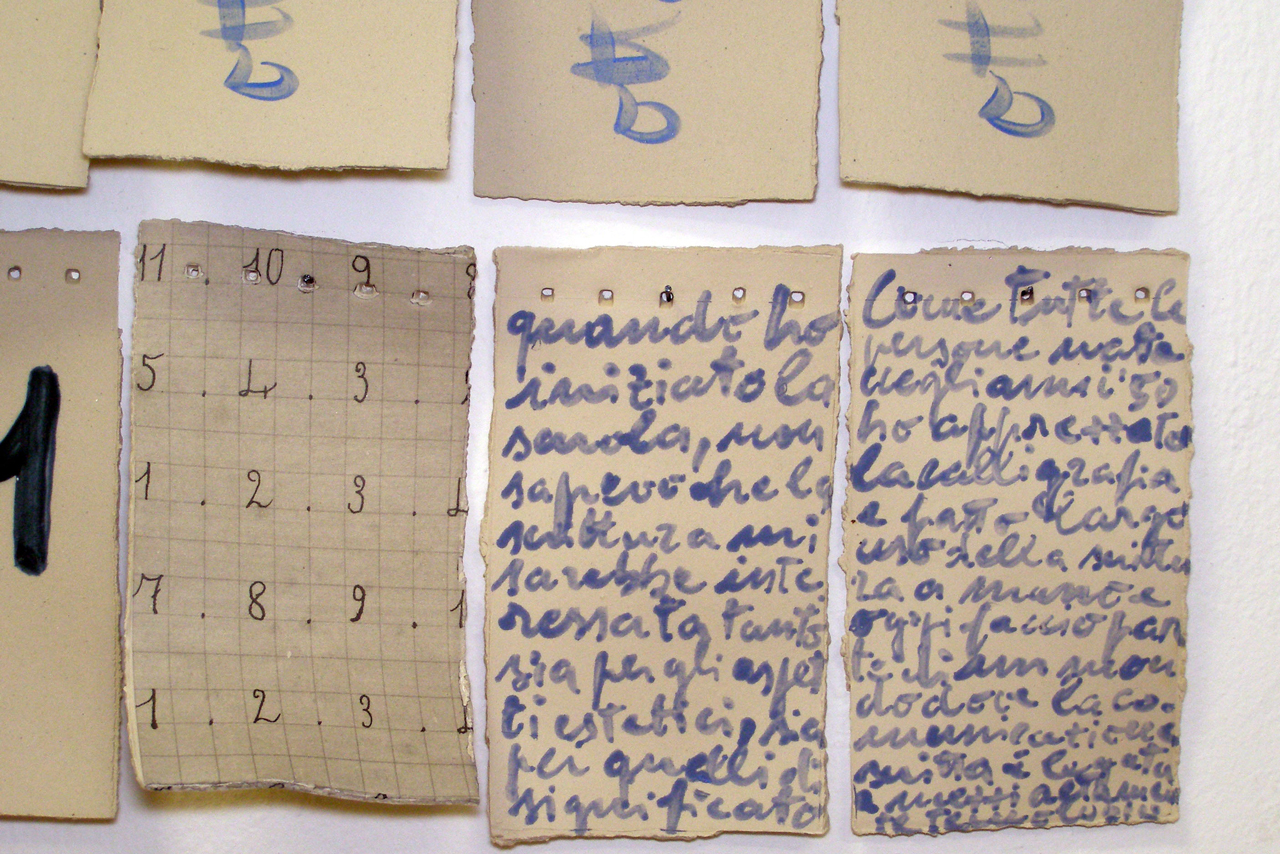 1
11 . 10 . 9 . 8
5 . 4 . 3 .
1 . 2 . 3 .
7 . 8 . 9 . 1
1 . 2 . 3 .
quando ho
iniziato la
scuola, non
sapevo che la
scrittura mi
sarebbe inte
ressata tanto
sia per gli aspet
ti estetici, sia
per quelli di
significato
Come tutte le
persone nate
negli anni '50
ho apprezzato
la calligrafia
e fatto largo
uso della scrittu
ra a mano e
oggi faccio par
te di un mon
do dove la co.
municazione
scritta è legata
a mezzi altamen
te tecnologici